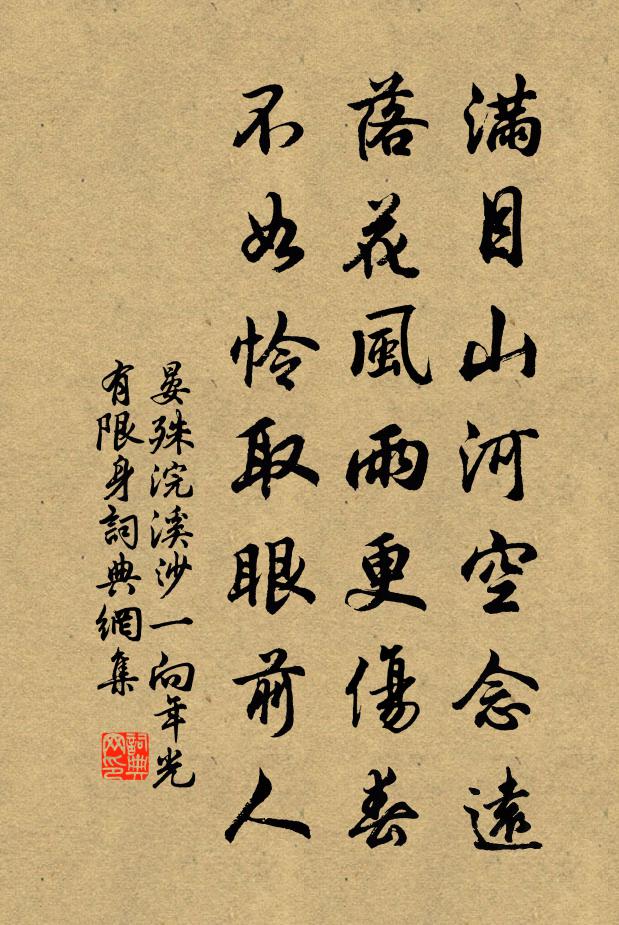 滿目山河空念遠
落花風雨更傷春
不如憐取眼前人
晏殊浣溪沙一向年光
有限身詞典網集
詞典
网印